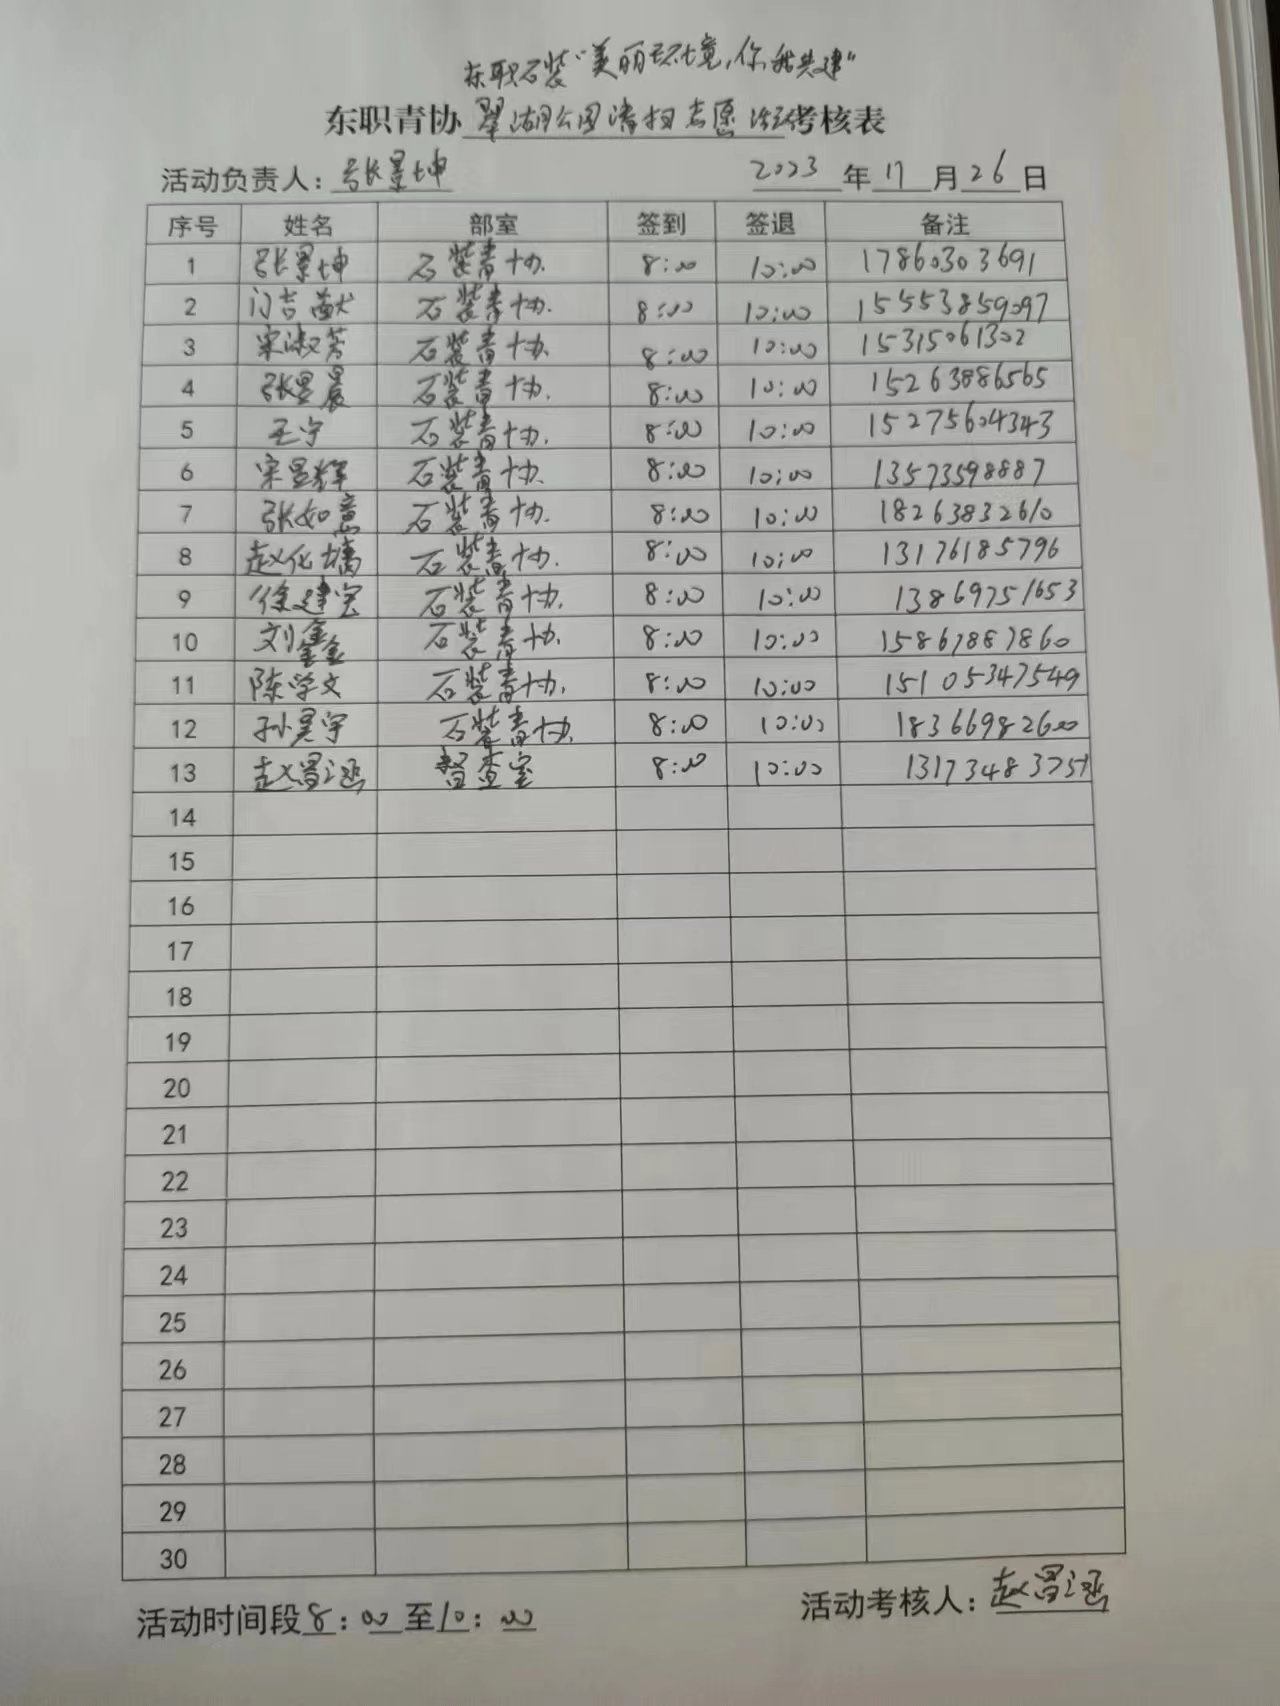 东职石装“美丽环境,你我共建”
东职青协翠湖公园清扫志愿活动考核表
活动负责人:张景坤 2023年11月26日
序号 姓名 部室 签到 签退 备注
1 张景坤 石装青协. 8:00 10:00 17860303691
2 门吉猷 石装青协. 8:00 10:00 15553859097
3 宋淑芳 石装青协. 8:00 10:00 15315061302
4 张昱晨 石装青协. 8:00 10:00 15263886565
5 王宁 石装青协. 8:00 10:00 15275604343
6 宋昱辉 石装青协. 8:00 10:00 13573598887
7 张如意 石装青协. 8:00 10:00 18263832610
8 赵化墑 石装青协. 8:00 10:00 13176185796
9 徐建宝 石装青协. 8:00 10:00 13869751653
10 刘鑫鑫 石装青协. 8:00 10:00 15867887860
11 陈学文 石装青协. 8:00 10:00 15105347549
12 孙昊宇 石装青协. 8:00 10:00 18366982600
13 赵冒涵 督查室 8:00 10:00 13173483751
14
15
16
17
18
19
20
21
22
23
24
25
26
27
28
29
30
活动时间段8:00至10:00 活动考核人:赵冒涵